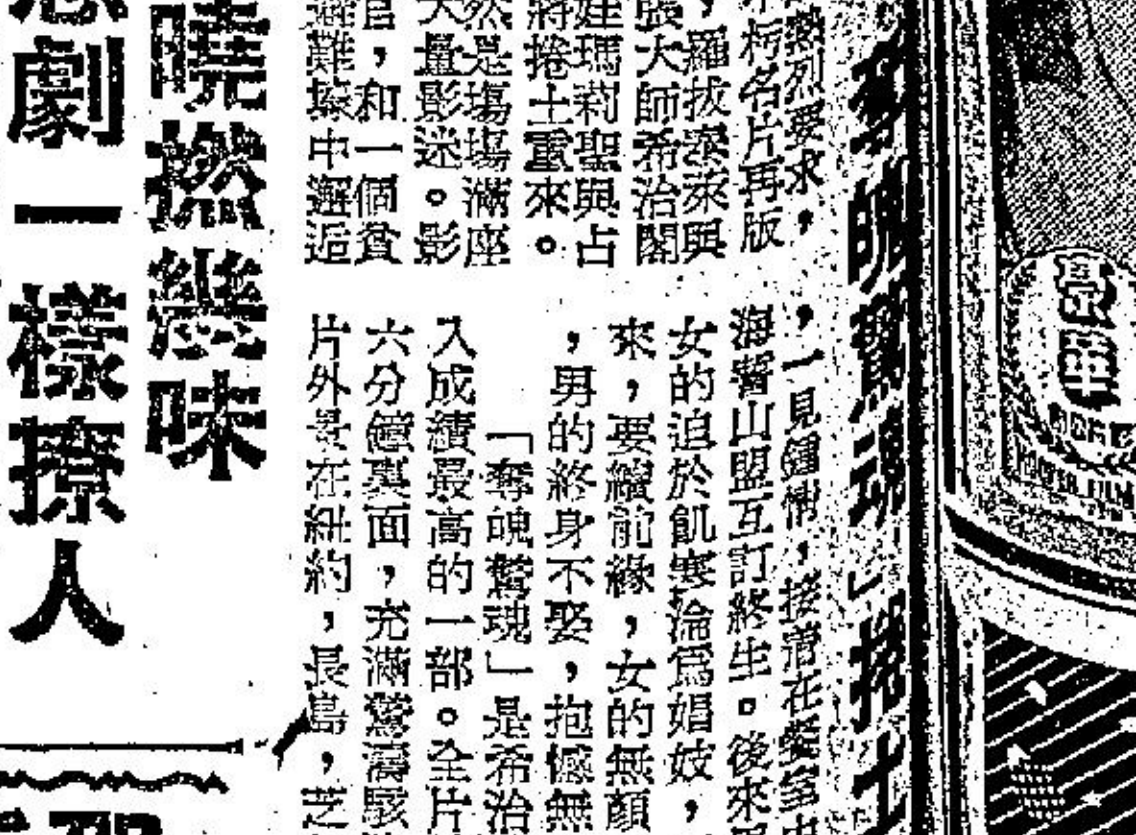 奪魄驚魂」捲土
熱烈要求，
名片再版
，羅拔泰來與
張大師希治閣
娃瑪莉聖與占
將捲土重來。
然是場場滿座
大量影迷。影
官，和一個貧
難壕中邂逅
，一見鍾情，接著在
海誓山盟互訂終生。後來
女的迫於飢寒淪爲娼妓，
來，要續前緣，女的無顏
，男的終身不娶，抱憾無
「奪魄驚魂」是希治
入成績最高的一部。全片
六分鐘裏面，充滿驚濤駭
片外景在紐約，長島，芝
曉撚幾味
劇一樣撩人